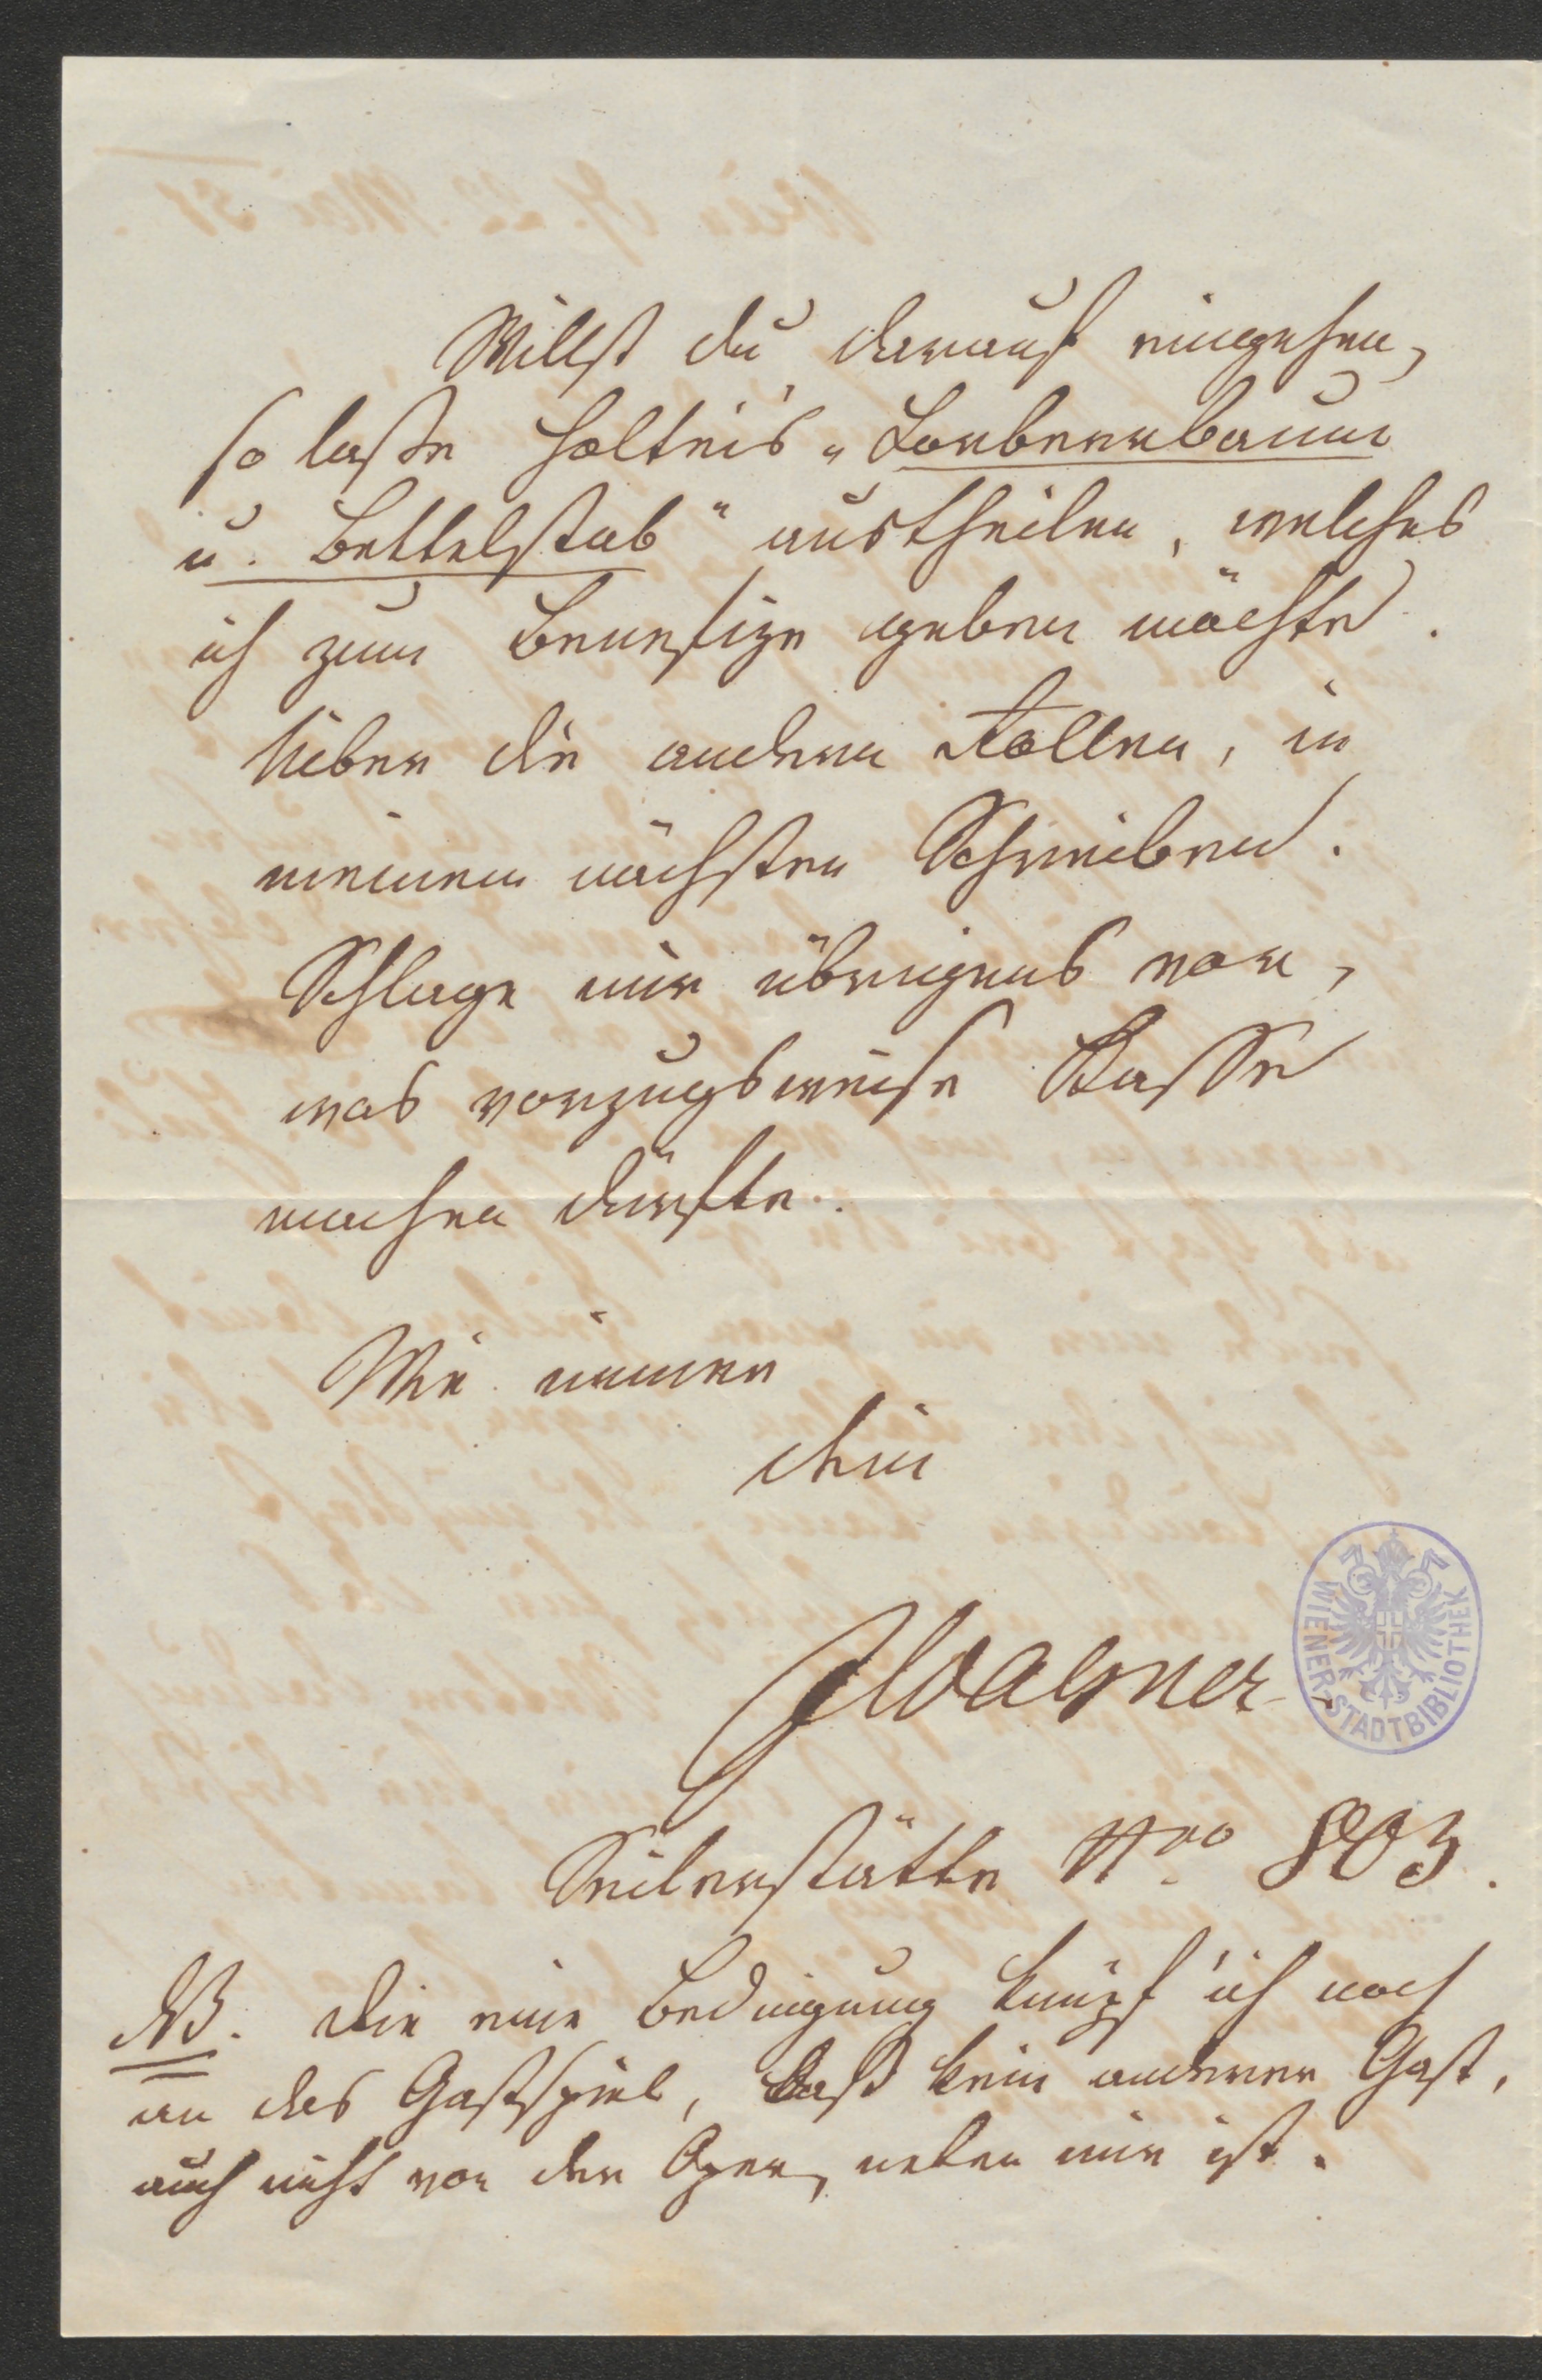 Willst du darauf eingehen,
so laße Holtei's „Lorbeerbaum
u. Bettelstab" austheilen, welches
ich zum Benefize geben möchte.
Ueber die andern Rollen, in
meinem nächsten Schreiben.
Schlage mir übrigens vor,
was vorzugsweise Kasse
machen dürfte.
Wie immer
dein
Wallner
Seilerstätte Nro 803.
NB. Die eine Bedingung knüpf' ich noch
an das Gastspiel, daß kein anderer Gast,
auch nicht von der Oper, neben mir ist.
WIENER STADTBIBLIOTHEK